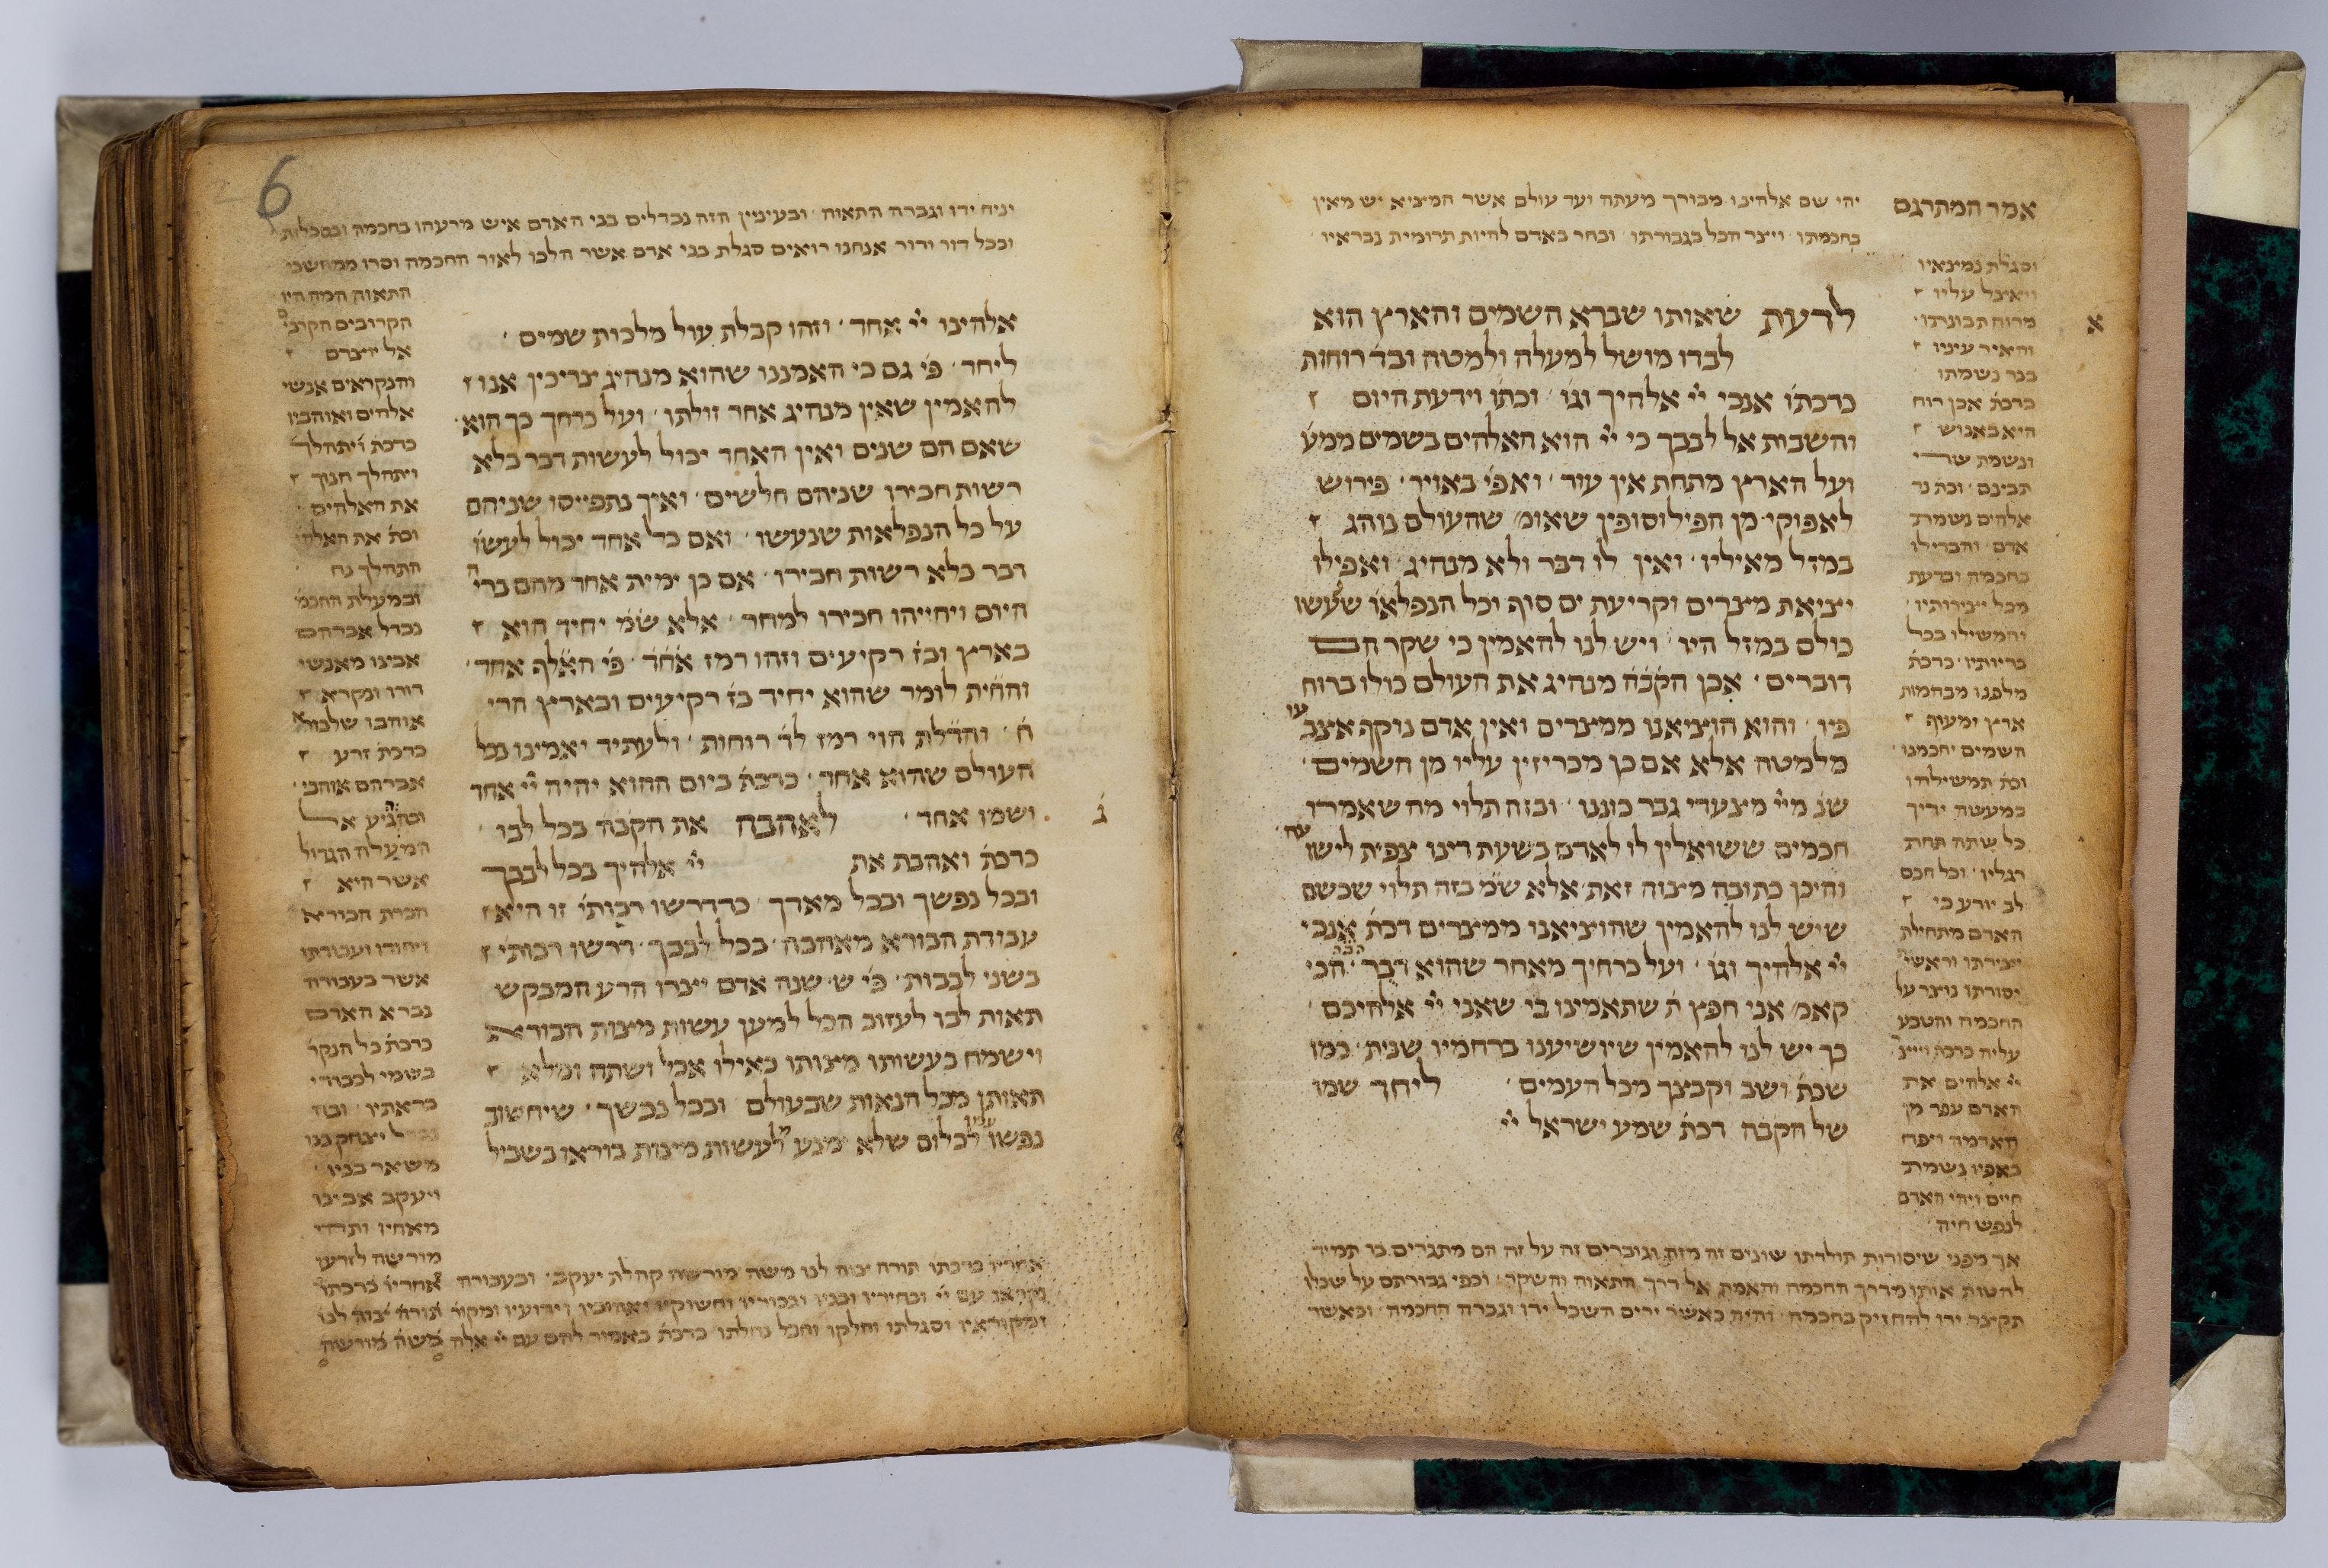 אמר המתרגם יהי שם אלהינו מבורך מעתה ועד עולם אשר המציא יש מאין
בחכמתו וייצר הכל בגבורתו ובחר באדם להיות תרומית נבראיו
וסגלת נמצאיו
ויאצל עליו
מרוח תבונתו
והאיר עיניו
בנר נשמתו
כדכת׳ אכן רוח
היא באנוש
ונשמת שדי
תבינם וכת׳ נר
אלהים נשמת
אדם והבדילו
בחכמה ובדעת
מכל יצירותיו
והמשילו בכל
בריותיו כדכת׳
מלפנו מבהמות
ארץ ומעוף
השמים יחכמנו
וכת׳ תמשילהו
במעשה ידיך
כל שתה תחת
רגליו וכל חכם
לב יודע כי
האדם מתחילת
יצירתו וראשי
יסודתו נוצר על
החכמה והטבע
עליה כדכת׳ וייצר
יי׳ אלהים את
האדם עפר מן
האדמה ויפח
באפיו נשמת
חיים ויהי האדם
לנפש חיה
אך מפני שיסודות תולדתו שונים זה מזה וגוברים זה על זה הם מתגרים בו תמיד
להטות אותו מדרך החכמה והאמת אל דרך התאוה והשקר וכפי גבורתם על שכלו
תקצר ידו להחזיק בחכמה והיה כאשר ירים השכל ידו וגברה החכמה וכאשר
א
לדעת שאותו שברא השמים והארץ הוא
לבדו מושל למעלה ולמטה ובד׳ רוחות
כדכת׳ אנכי יי׳ אלהיך וגו׳ וכת׳ וידעת היום
והשבות אל לבבך כי יי׳ הוא האלהים בשמים ממע׳
ועל הארץ מתחת אין עוד ואפי׳ באויר פירוש
לאפוקי מן הפילוסופין שאומ׳ שהעולם נוהג
במזל מאיליו ואין לו דבר ולא מנהיג ואפילו
יציאת מצרים וקריעת ים סוף וכל הנפלאו׳ שנעשו
כולם במזל היו ויש לנו להאמין כי שקר הם
דוברים אכן הקב״ה מנהיג את העולם כולו ברוח
פיו והוא הוציאנו ממצרים ואין אדם נוקף אצבעו
מלמטה אלא אם כן מכריזין עליו מן השמים
שנ׳ מיי׳ מצעדי גבר כוננו ובזה תלוי מה שאמרו
חכמים ששואלין לו לאדם בשעת דינו צפית לישועה
והיכן כתובה מצוה זאת אלא ש״מ בזה תלוי שכשם
שיש לנו להאמין שהוציאנו ממצרים דכת׳ אנכי
יי׳ אלהיך וגו׳ ועל כרחיך מאחר שהוא דבר הכי
קאמ׳ אני חפץ ה׳ שתאמינו בי שאני יי׳ אלהיכם
כך יש לנו להאמין שיושיענו ברחמיו שנית כמו
שכת׳ ושב וקבצך מכל העמים ליחד שמו
של הקב״ה דכת׳ שמע ישראל יי׳
6
יניח ידו וגברה התאוה ובעינין הזה נבדלים בני האדם איש מרעהו בחכמה ובסכלות
ובכל דור ודור אנחנו רואים סגלת בני אדם אשר הלכו לאור החכמה וסרו ממחשכי
התאוה המה היו
הקרובים הקרובי׳
אל יוצרם
והנקראים אנשי
אלהים ואוהביו
כדכת׳ ויתהלך
ויתהלך חנוך
את האלהים
וכת׳ את האלהי׳
התהלך נח
ובמעלת החכמ׳
נבדל אברהם
אבינו מאנשי
דורו ונקרא
אוהבו של בורא
כדכת׳ זרע
אברהם אוהבי
והגיע אל
המעלה הגדול׳
אשר היא
הכרת הבורא
ויחודו ועבודתו
אשר בעבורה
נברא האדם
כדכת׳ כל הנקר׳
בשמי לכבודי
בראתיו ובה
נבדל יצחק בנו
משאר בניו
ויעקב אבינו
מאחיו ותהי
מורשה לזרעו
אחריו כדכתו׳ תורה צוה לנו משה מורשה קהלת יעקב ובעבורה
עם יי׳ ובחיריו ובניו ובכוריו וחשוקיו ואהוביו וידועיו ומקור
וסגלתו וחלקו וחבל נחלתו כדכת׳ באמור להם עם יי׳ אלה
אחריו כדכתו׳
תורה צוה לנו
משה מורשה
אלהינו יי׳ אחד וזהו קבלת עול מלכות שמים
ליחד פי׳ גם כי האמננו שהוא מנהיג צריכין אנו
להאמין שאין מנהיג אחר זולתו ועל כרחך כך הוא
שאם הם שנים ואין האחד יכול לעשות דבר בלא
רשות חבירו שניהם חלשים ואיך נתפייסו שניהם
על כל הנפלאות שנעשו ואם כל אחד יכול לעשו׳
דבר בלא רשות חבירו אם כן ימית אחד מהם בריה
היום ויחייהו חבירו למחר אלא ש״מ יחיד הוא
בארץ ובז׳ רקיעים וזהו רמז אחד פי׳ האלף אחד
והחית לומר שהוא יחיד בז׳ רקיעים ובארץ הרי
ח׳ והדלת הוי רמז לד׳ רוחות ולעתיד יאמינו בכל
העולם שהוא אחד כדכת׳ ביום ההוא יהיה יי׳ אחד
ושמו אחד לאהבה את הקב״ה בכל לבו
ג
כדכת׳ ואהבת את יי׳ אלהיך בכל לבבך
ובכל נפשך ובכל מאדך כדדרשו רבותי׳ זו היא
עבודת הבורא מאהבה בכל לבבך דרשו רבותי׳
בשני לבבות פי׳ ש׳ שנה אדם יצרו הרע המבקש
תאות לבו לעזוב הכל למען עשות מצות הבורא
וישמח בעשותו מצותו כאילו אכל ושתה ומלא
תאותו מכל הנאות שבעולם ובכל נפשך שיחשוב
נפשו עליו לכלום שלא ימנע מלעשות מצות בוראו בשביל